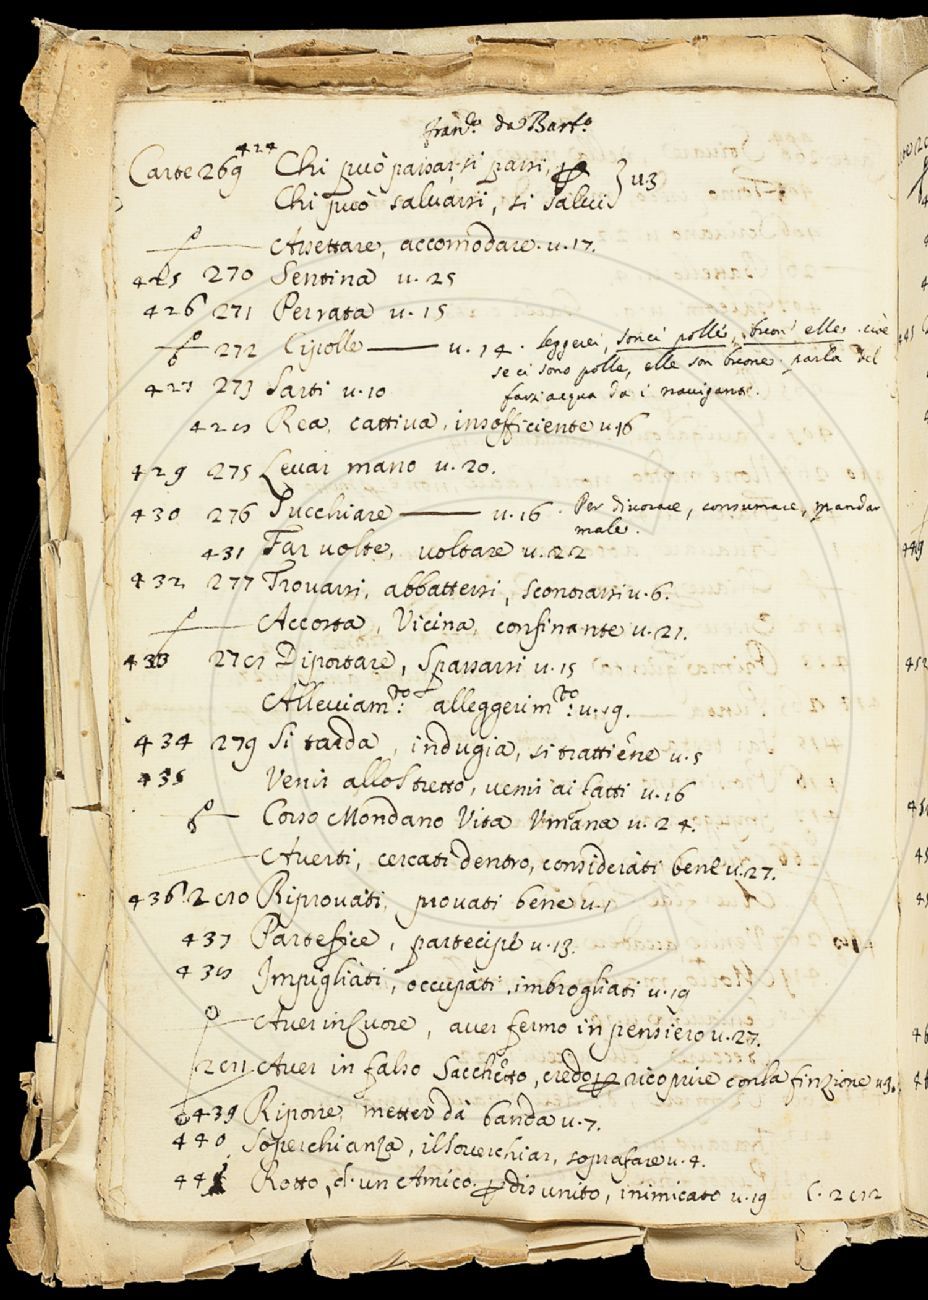 Fran.co da Barb.o
424
Carte 269 Chi può passarsi passi, } u 3
Chi può saluarsi, si salui
Assettare, accomodare. u. 17.
425 270 Sentina u. 25
426 271 Perrata u. 15
272 Cipolle — u. 14. leggerei, sonci polle, buon' elle. cioè
se ci sono polle, elle son buone. parla del
427 273 Sarti u. 10
farsi acqua da i naviganti.
428 Rea, cattiua, insofficiente u 16
429 275 Leuar mano u. 20.
430 276 Pucchiare — u. 16. Per divorare, consumare, mandar
male.
431 Far uolte, uoltare u. 22
432 277 Trouarsi, abbattersi, scontrarsi u. 6.
Accosta, Vicina, confinante u. 21.
433 278 Diportare, Spassarsi u. 15
Alleuiam.to alleggerim.to: u. 19.
434 279 Si tarda, indugia, si trattiene u. 5
435 Venir allo Stretto, uenir ai fatti u. 16
Corso Mondano Vita Vmana u. 24.
Auerti, cercati dentro, considerati bene u. 27.
436. 280 Riprouati, prouati bene u. 1
437 Partefice, partecipe u. 13.
438 Impigliati, occupati, imbrogliati u. 19
Auer in Cuore, auer fermo in pensiero u. 27.
281 Auer in falso Sacchetto, credo ricoprire con la finzione
439 Riporre, metter da banda u. 7.
440 Soperchianza, il souerchiar, soprafare u. 4.
441 Rotto, d. un Amico. disunito, inimicato u. 19 C. 282